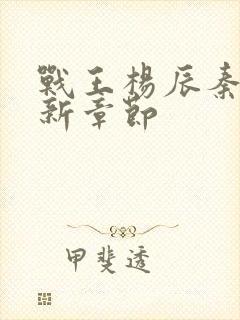 戰王楊辰秦
新章節
甲斐透